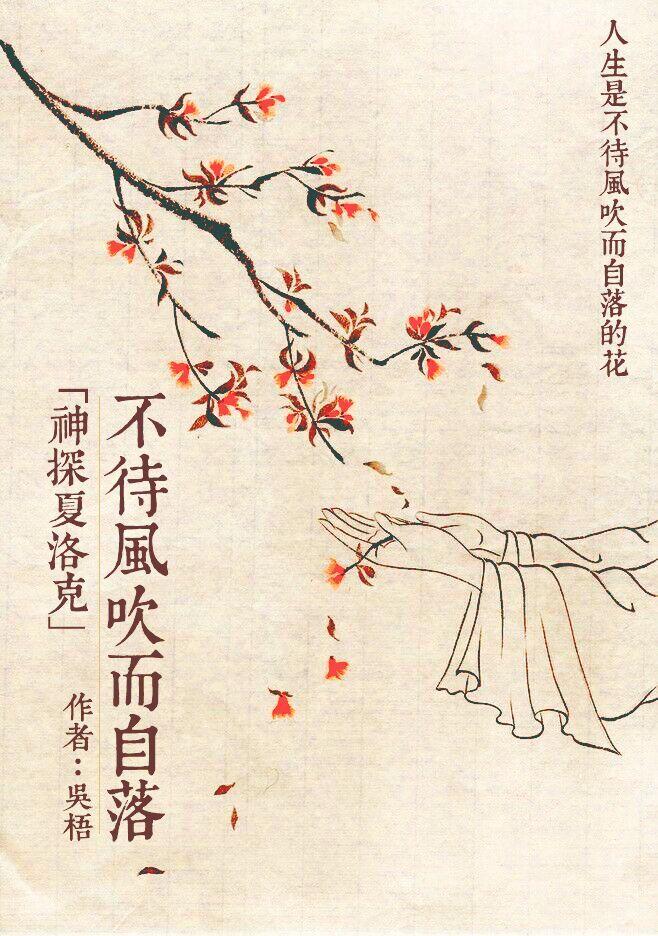 人生是不待風吹而自落的花
不待風吹而自落
「神探夏洛克」
作者：吳梧